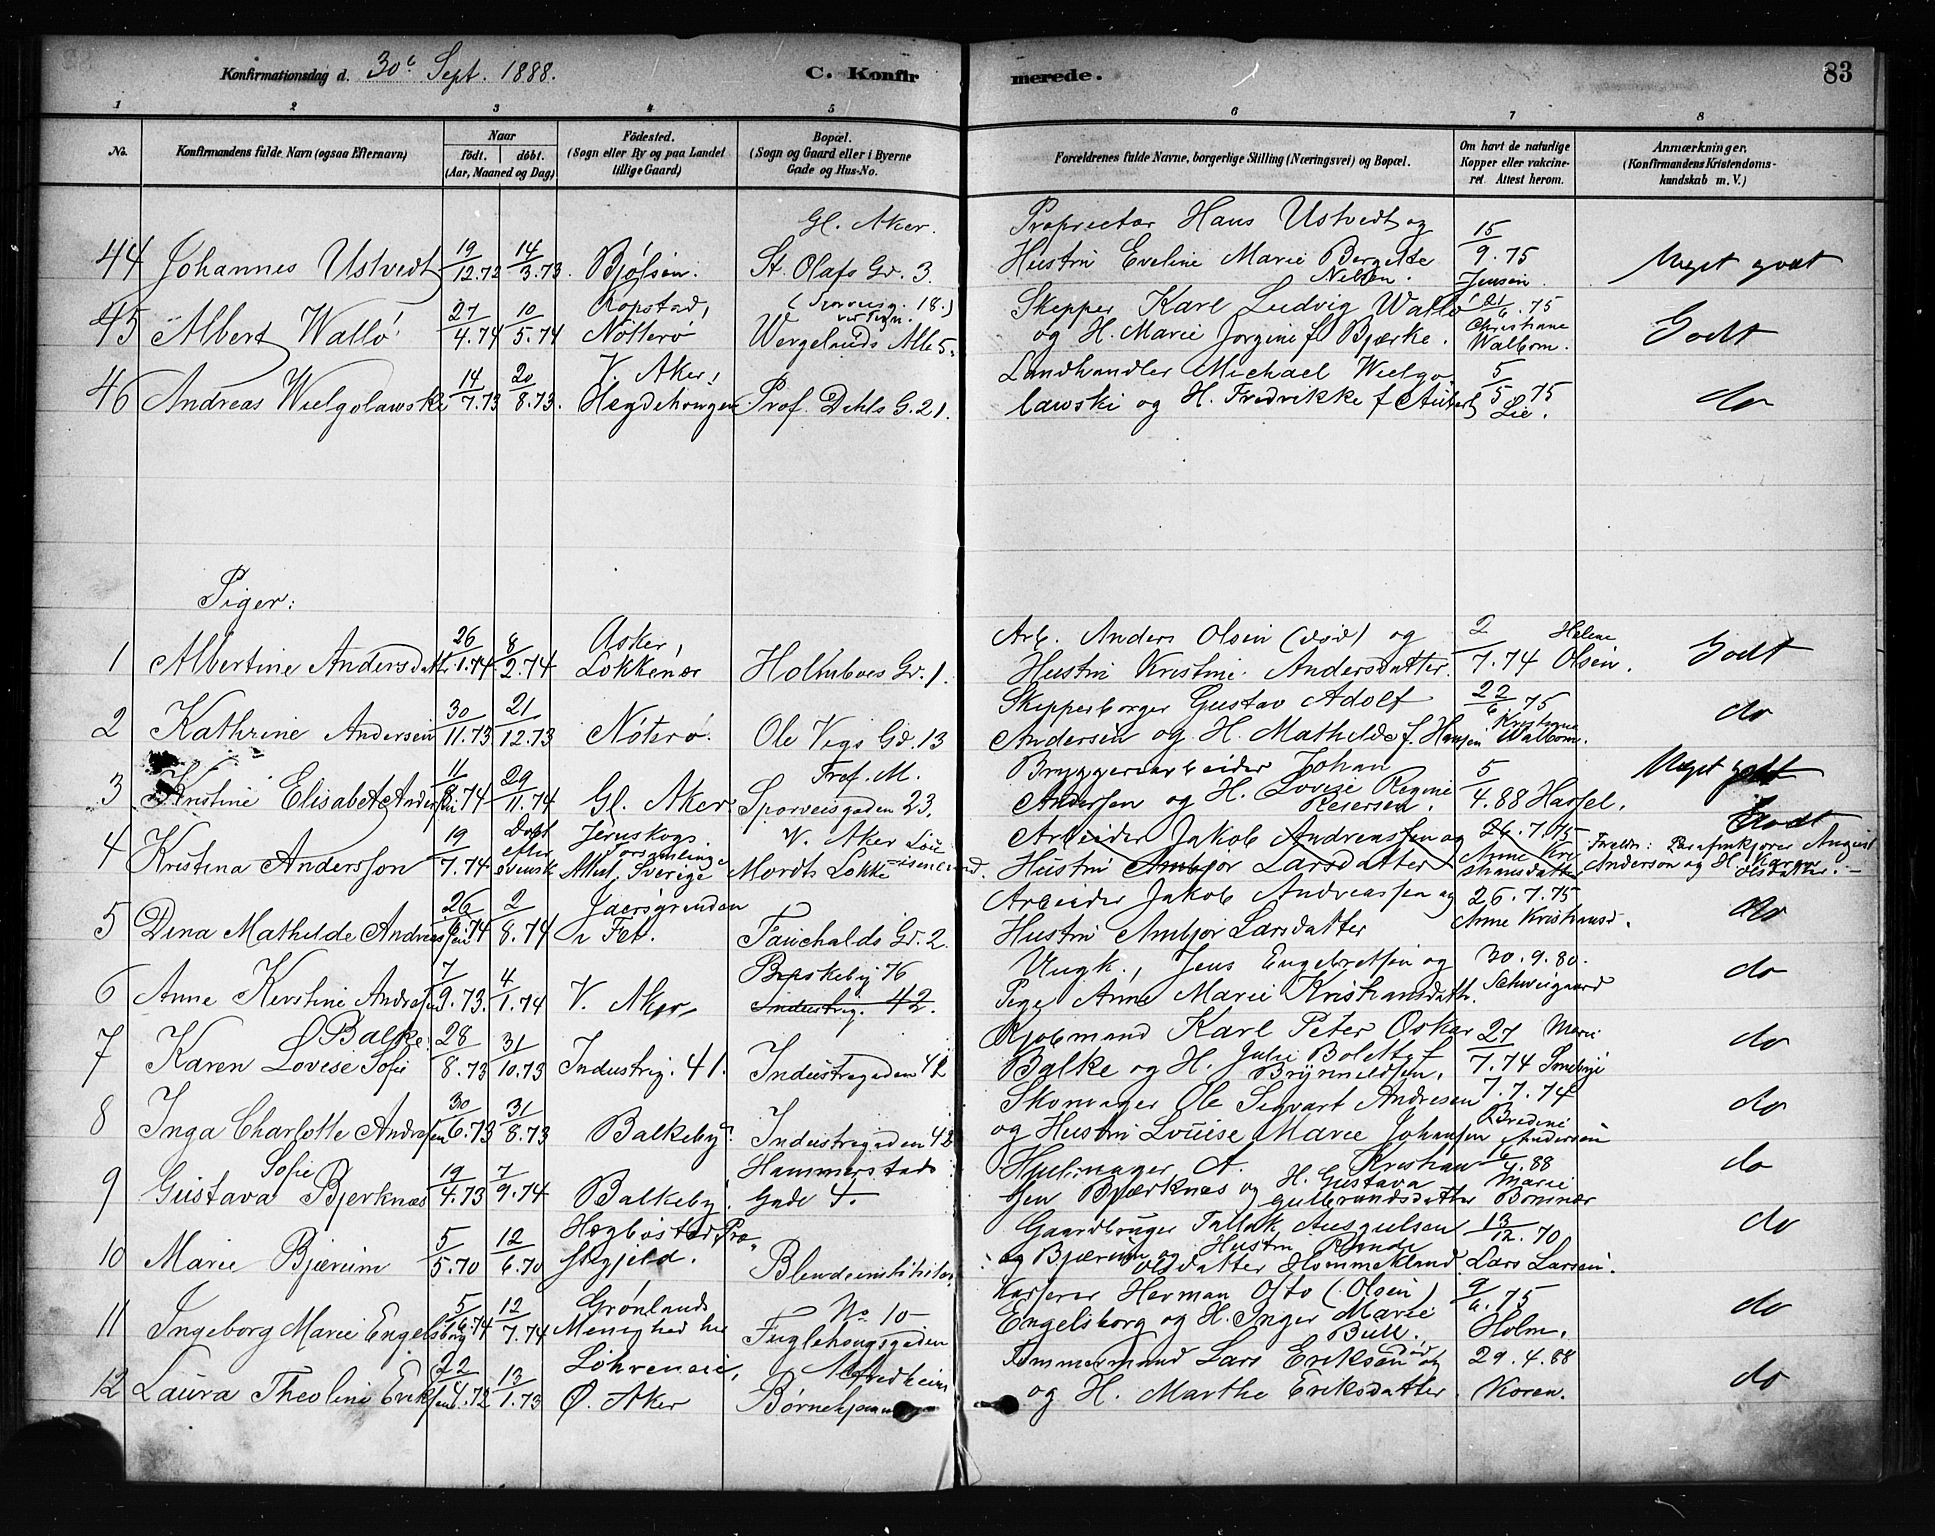 Konfirmationsdag d. 30te Sept. 1888.
C. Konfirmerede.
83
1 2 3 4 5 6 7 8
No.
Konfirmandens fulde Navn (ogsaa Efternavn)
Naar
født. døbt.
(Aar, Maaned og Dag)
Fødested.
(Sogn eller By og paa Landet
tillige Gaard)
Bopæl.
(Sogn og Gaard eller i Byerne
Gade og Hus-No.
Forældrenes fulde Navne, borgerlige Stilling (Næringsvei) og Bopæl.
Om havt de naturlige
Kopper eller vakcine-
ret. Attest herom.
Anmærkninger.
(Konfirmandens Kristendoms-
kundskab m. V.)
44 Johannes Ustvedt 19/12.72 14/3.73. Bjølsen. Gl. Aker. St. Olafs Gd. 3
Proprietær Hans Ustvedt og
Hustru Eveline Marie Bergette
Nelsen.
15/9.75 Jensen.
Meget godt
45 Albert Wallø 27/4.74 10/5.74 Ropstad, Nøtterø (Sporveisg. 18.) Wergelands Alle 5.
Skipper Karl Ludvig Wallø
og H. Marie Jorgine f. Bjærke.
21/6.75 Christiane Walbom.
Godt
46 Andreas Wielgolawski 14/7.73 20/8.73. V. Aker, Hegdehougen Prof. Dahls G. 21.
Landhandler Michael Wielgo
lawski og H. Fredrikke f. Aubert
5/5 75 Lie.
do
Piger:
1 Albertine Andersdatter 26/1.74. 8/2.74 Asker, Løkkenær Holmboes Gd. 1.
Arb. Anders Olsen (død) og
Hustru Kristine Andersdatter.
2/7.74 Helene Olsen.
Godt
2 Kathrine Andersen 30/11.73 21/12.73 Nøterø. Ole Vigs Gd. 13
Skipperborger Gustav Adolf
Andersen og H. Mathilde f. Hansen
22/6.75 Kristiane Walbom.
do
3 Kristine Elisabet Andersen 11/8.74 29/11.74 Gl. Aker Prof. M. Sporveisgaden 23.
Bryggeriarbeider Johan
Andersen og H. Lovise Regine
5/4.88 Harsel.
Meget godt
4 Kristina Andersson 19/7.74 Døbt efter svensk Attest, Sverige V. Aker Mordts Løkke
Arbeider Jakob Andreassen og
Hustru Ambjør Larsdatter
26.7.75 Anne Kristiansdatter
Godt
Foreldre: August
Anderson og H. Karen
Olsdatter.
5 Dina Mathilde Andreassen 26/6.74 2/8.74 i Fet. Fauchalds Gd. 2.
Arbeider Jakob Andreassen og
Hustru Ambjør Larsdatter
26.7.75 Anne Kristiansd.
do
6 Anne Kerstine Andrasen 7/9.73. 4/1.74 V. Aker Briskeby 76
Industrig. 42.
Ungk., Jens Engebretsen og
Pige Anne Marie Kristiansdatt.
30.9.80. Schweigaard
do
7 Karen Lovise Sofie Balke 28/8.73 31/10.73 Industrig. 41. Industrigaden 42
Kjøbmand Karl Peter Oskar
Balke og H. Julie Bolette f.
Brynnildsen.
27/7.74 Marie
do
8 Inga Charlotte Andrasen 30/6.73 31/8.73 Balkeby. Industrigaden 42
Skomager Ole Sigvart Andresen
og Hustru Louise Marie Johansen
7.7.74 Andersen
do
9 Gustava Sofie Bjerknæs 19/4.73 7/9.74 Balkeby. Hammerstads Gade 4.
Hjulmager A. Kristian
sen Bjærknæs og H. Gustava
Gulbrandsdatter
16/4.88 Marie Bomnær
do
10 Marie Bjærum 5/5.70 12/6.70 Hægbostad Præ-
stegjeld. Blindeinstitutet
Gaardbruger Tallak Ausgulsen
og Hustru
Olsdatter
13/12.70 Lars Larsen.
do
11 Ingeborg Marie Engelsborg 5/6.74 12/7.74 Grønlands Menighed her No 10 Fuglehougsgaden
Kasserer Herman Otto (Olsen)
Engelsborg og H. Inger Marie
Bull.
9/6.75 Holm.
do
12 Laura Theoline Eriksen 22/4.72 13/1.73 Ø. Aker Børnehjem
Tømmermand Lars Eriksen død og
og H. Marthe Eriksdatter.
29.4.88 Koren.
do